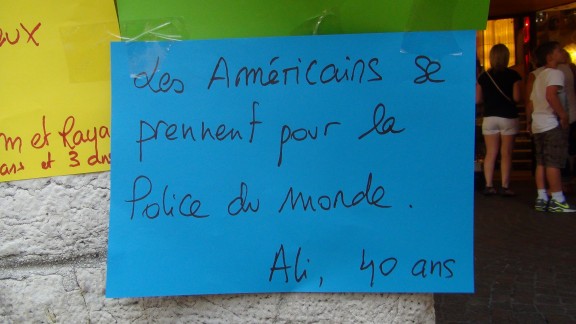 Les Américains se
prennent pour la
Police du monde.
Ali, 40 ans
eux
m et Raya
ans et 3 ans